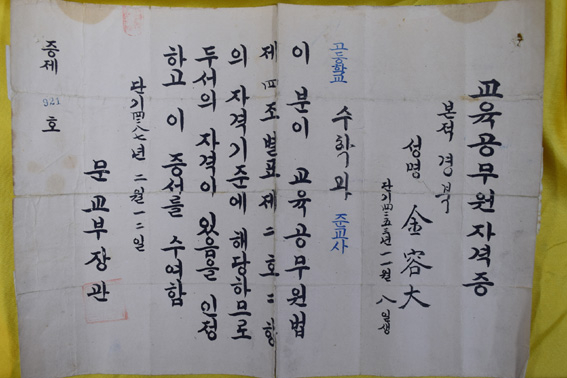 교육공무원 자격증
본적 경북
성명 金容大
단기四二五三년 一一월 八일생
고등학교 수학과 준교사
이 분이 교육공무원법
제 四 조 별표 제 二 호 二 항
의 자격기준에 해당하므로
두서의 자격이 있음을 인정
하고 이 증서를 수여함
단기四二八七년 二월 一二일
문교부장관
증제 921 호